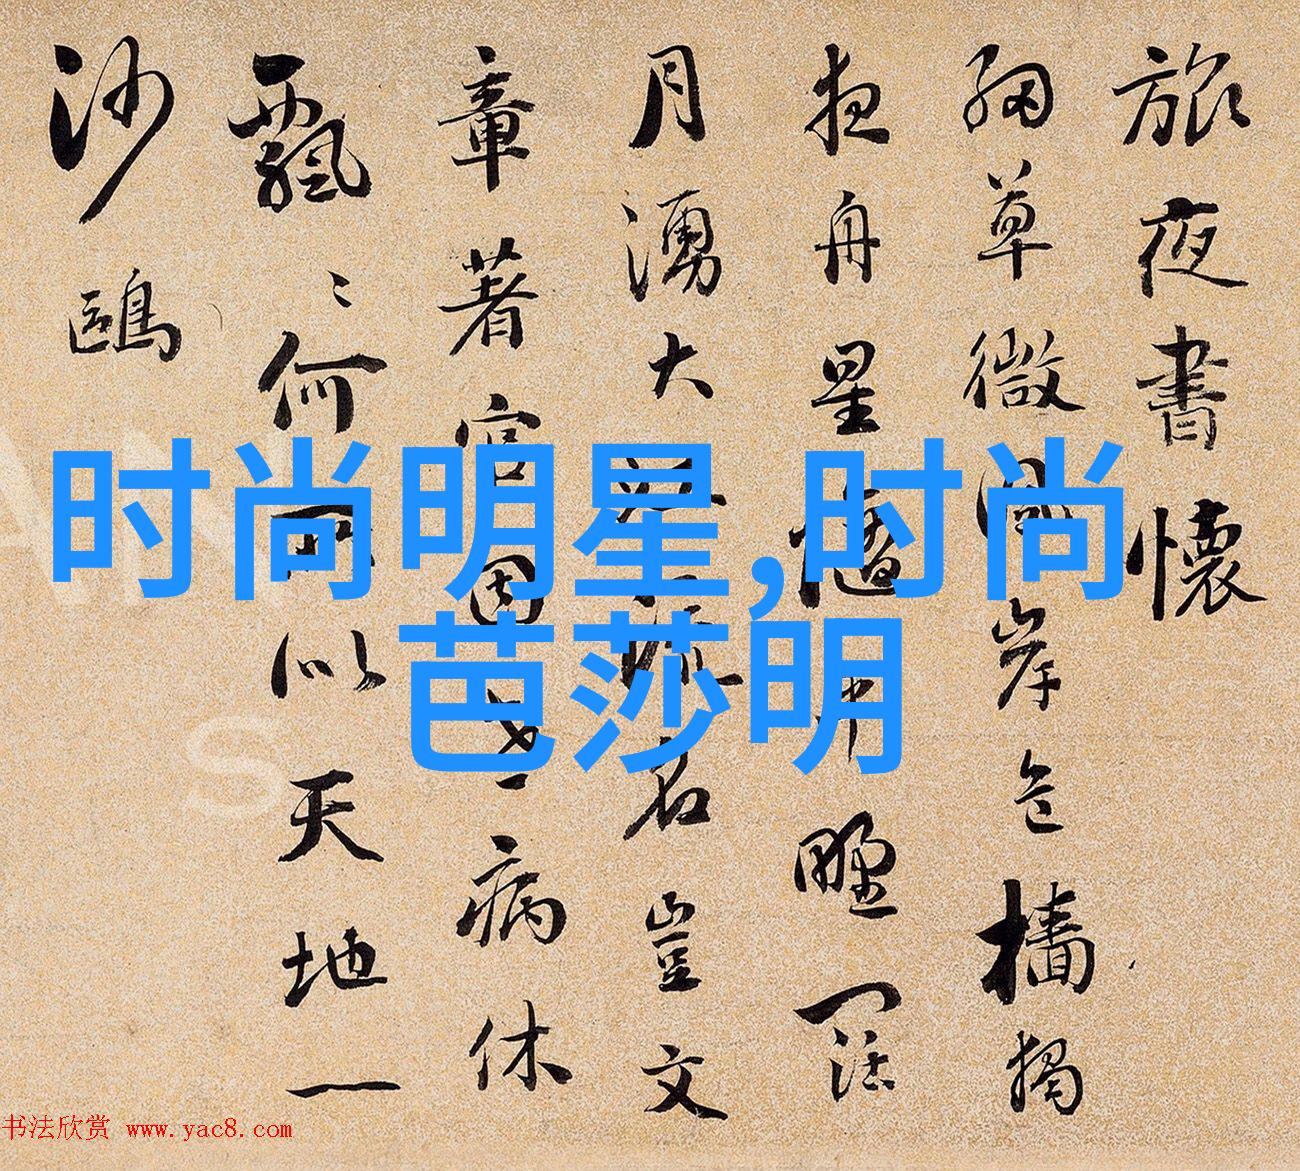 旅夜書懷
細草微風岸危檣獨
夜舟星隨平野闊
月湧大江流名豈文
章著官因老病休
飄〻何所似天地一
沙鷗
时尚明星,时尚
芭莎明
书法欣赏 www.yac8.com